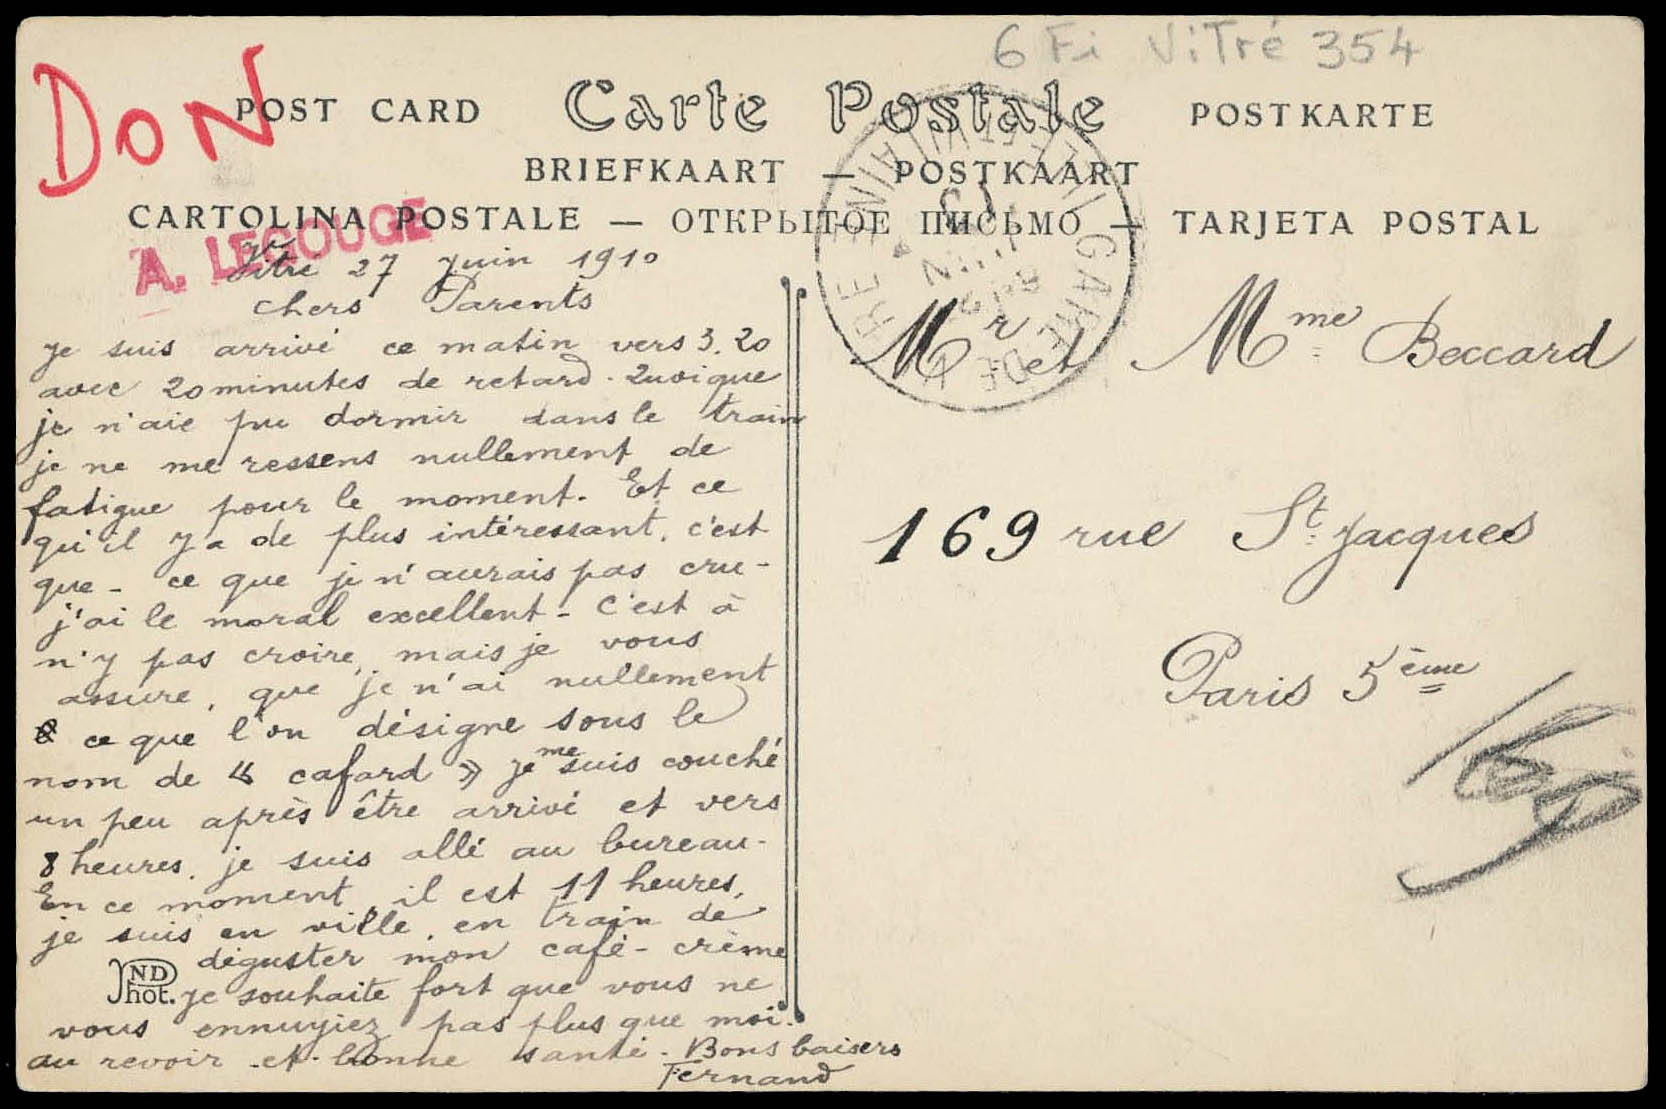 6 Fi Vitré 354
DON
POST CARD Carte Postale POSTKARTE
BRIEFKAART — POSTKAART
CARTOLINA POSTALE — ОТКРЫТОЕ ПИСЬМО — TARJETA POSTAL
A. LEGOUGE
Vitré 27 Juin 1910
Chers Parents
Je suis arrivé ce matin vers 3.20
avec 20 minutes de retard. Quoique
je n'aie pu dormir dans le train
je ne me ressens nullement de
fatigue pour le moment. Et ce
qu'il y a de plus intéressant, c'est
que - ce que je n'aurais pas cru -
j'ai le moral excellent - C'est à
n'y pas croire, mais je vous
assure, que je n'ai nullement
ce que l'on désigne sous le
nom de « cafard » Je me suis couché
un peu après être arrivé et vers
8 heures, je suis allé au bureau -
En ce moment, il est 11 heures,
je suis en ville, en train de
déguster mon café-crème
ND Phot.
Je souhaite fort que vous ne
vous ennuyiez pas plus que moi.
au revoir et bonne santé - Bons baisers
Fernand
Mr et Mme Beccard
169 rue St. Jacques
Paris 5ème
GARE DE
ILLE ET VILAINE
JUIN